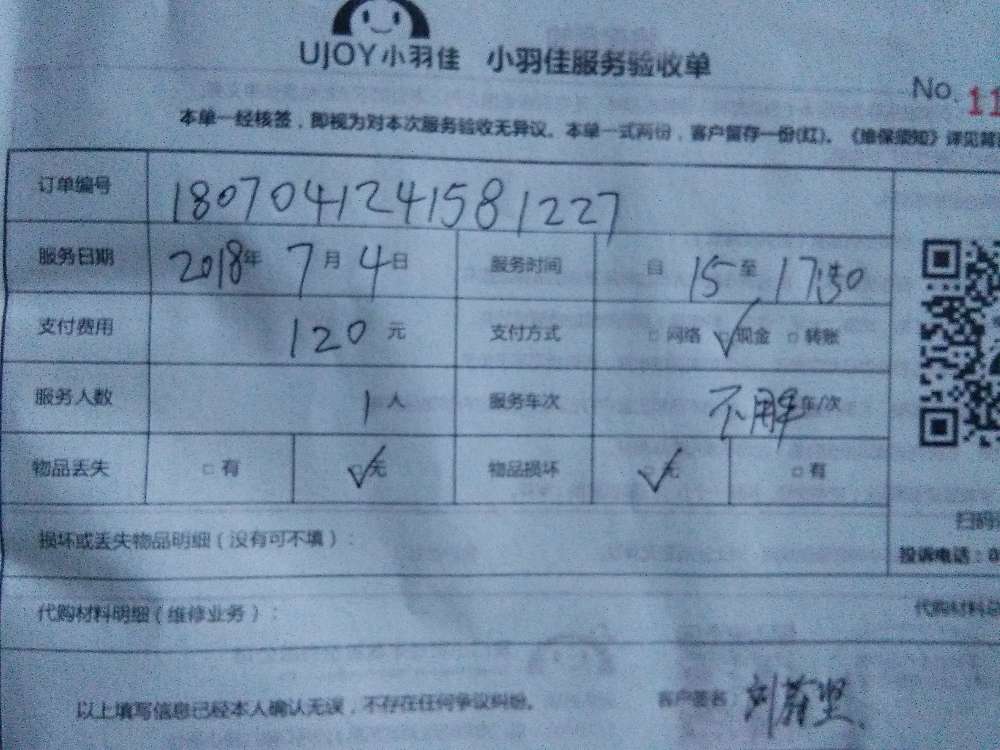 UJOY小羽佳 小羽佳服务验收单
No. 11
本单一经核签，即视为对本次服务验收无异议。本单一式两份，客户留存一份(红)。《维保须知》详见背
订单编号 1807041241581227
服务日期 2018年 7月 4日 服务时间 自 15 至 17:50
支付费用 120 元 支付方式 □网络 ☑现金 □转账
服务人数 1 人 服务车次 不用 车/次
物品丢失 □有 ☑无 物品损坏 ☑无 □有
扫码
损坏或丢失物品明细（没有可不填）：
投诉电话：
代购材料明细（维修业务）：
代购材料总
以上填写信息已经本人确认无误，不存在任何争议纠纷。 客户签名：刘